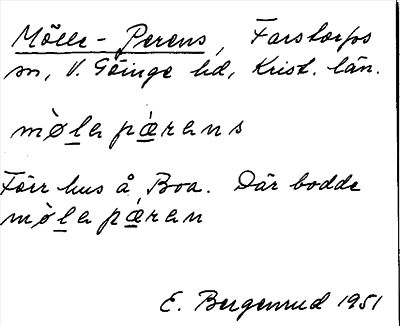 Mölle-Perens, Farstorps
sn, V. Göinge hd, Krist. län.
mø̀la pæ̀rans
Förr hus å Boa. Där bodde
mø̀la pæ̀ran
E. Bergenrud 1951